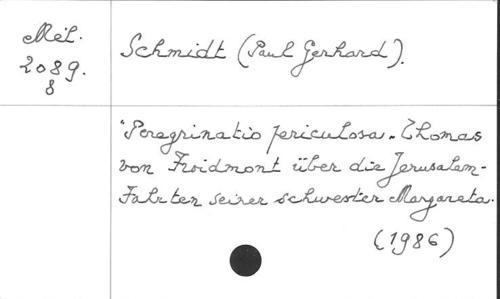 Mél.
2089.
8
Schmidt (Paul Gerhard).
"Peregrinatio periculosa. Thomas
von Froidmont über die Jerusalem-
Fahrten seiner schwester Margareta.
(1986)